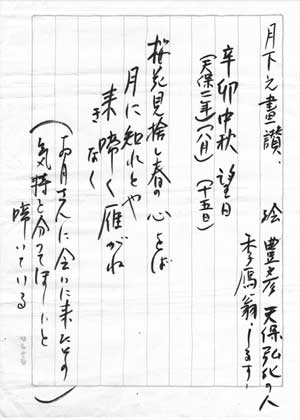 月下之畫讃、
絵 豊彦 天保弘化の人
季鷹翁、しるす、
辛卯中秋 望日
(天保二年)(八月) (十五日)
桜花見捨し春の心をば
月に知れとや
来啼く雁がね
き なく
(お月さんに会いに来たその
気持を分ってほしいと
啼いている)